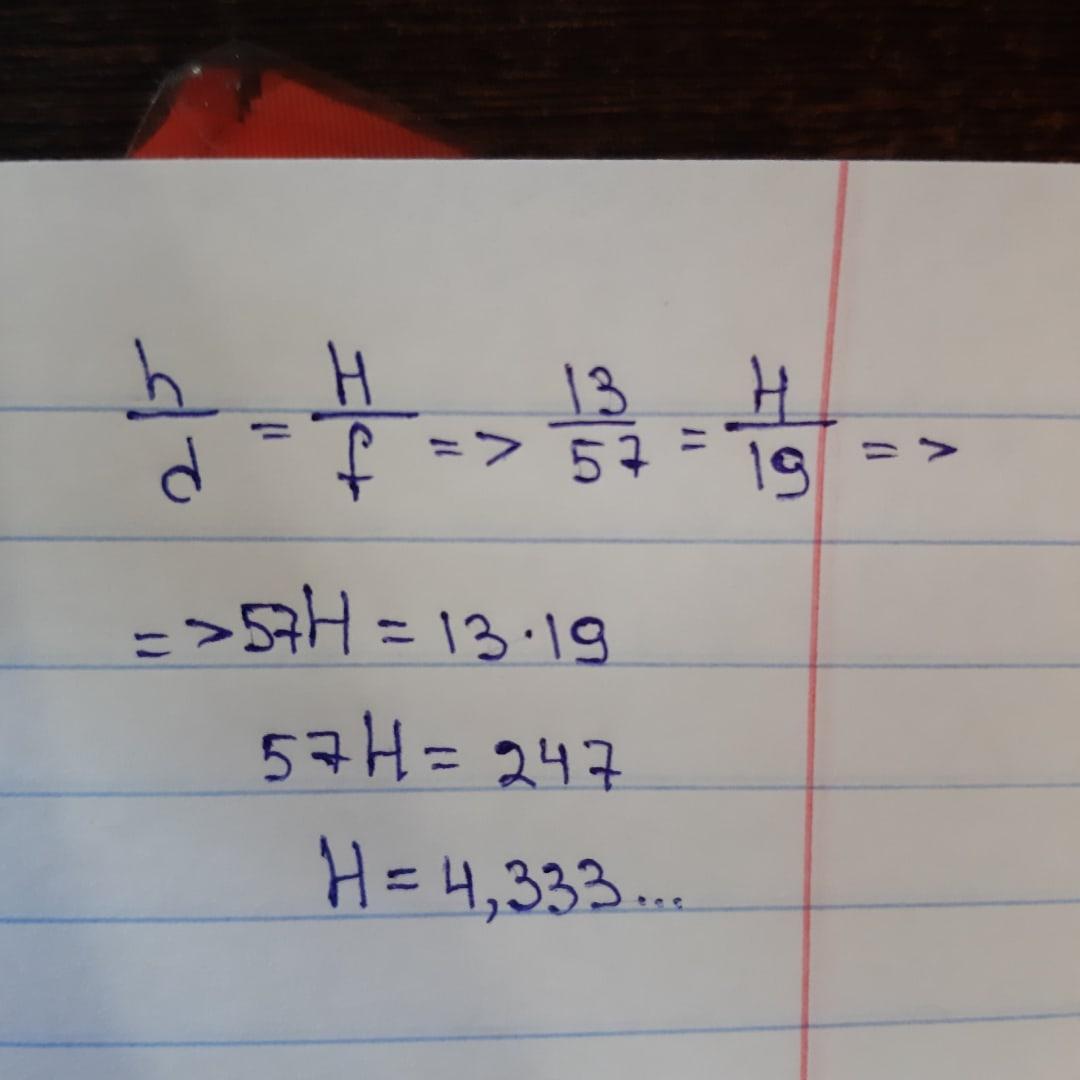 h/d = H/f => 13/57 = H/19 =>
=> 57H = 13·19
57H = 247
H = 4,333...